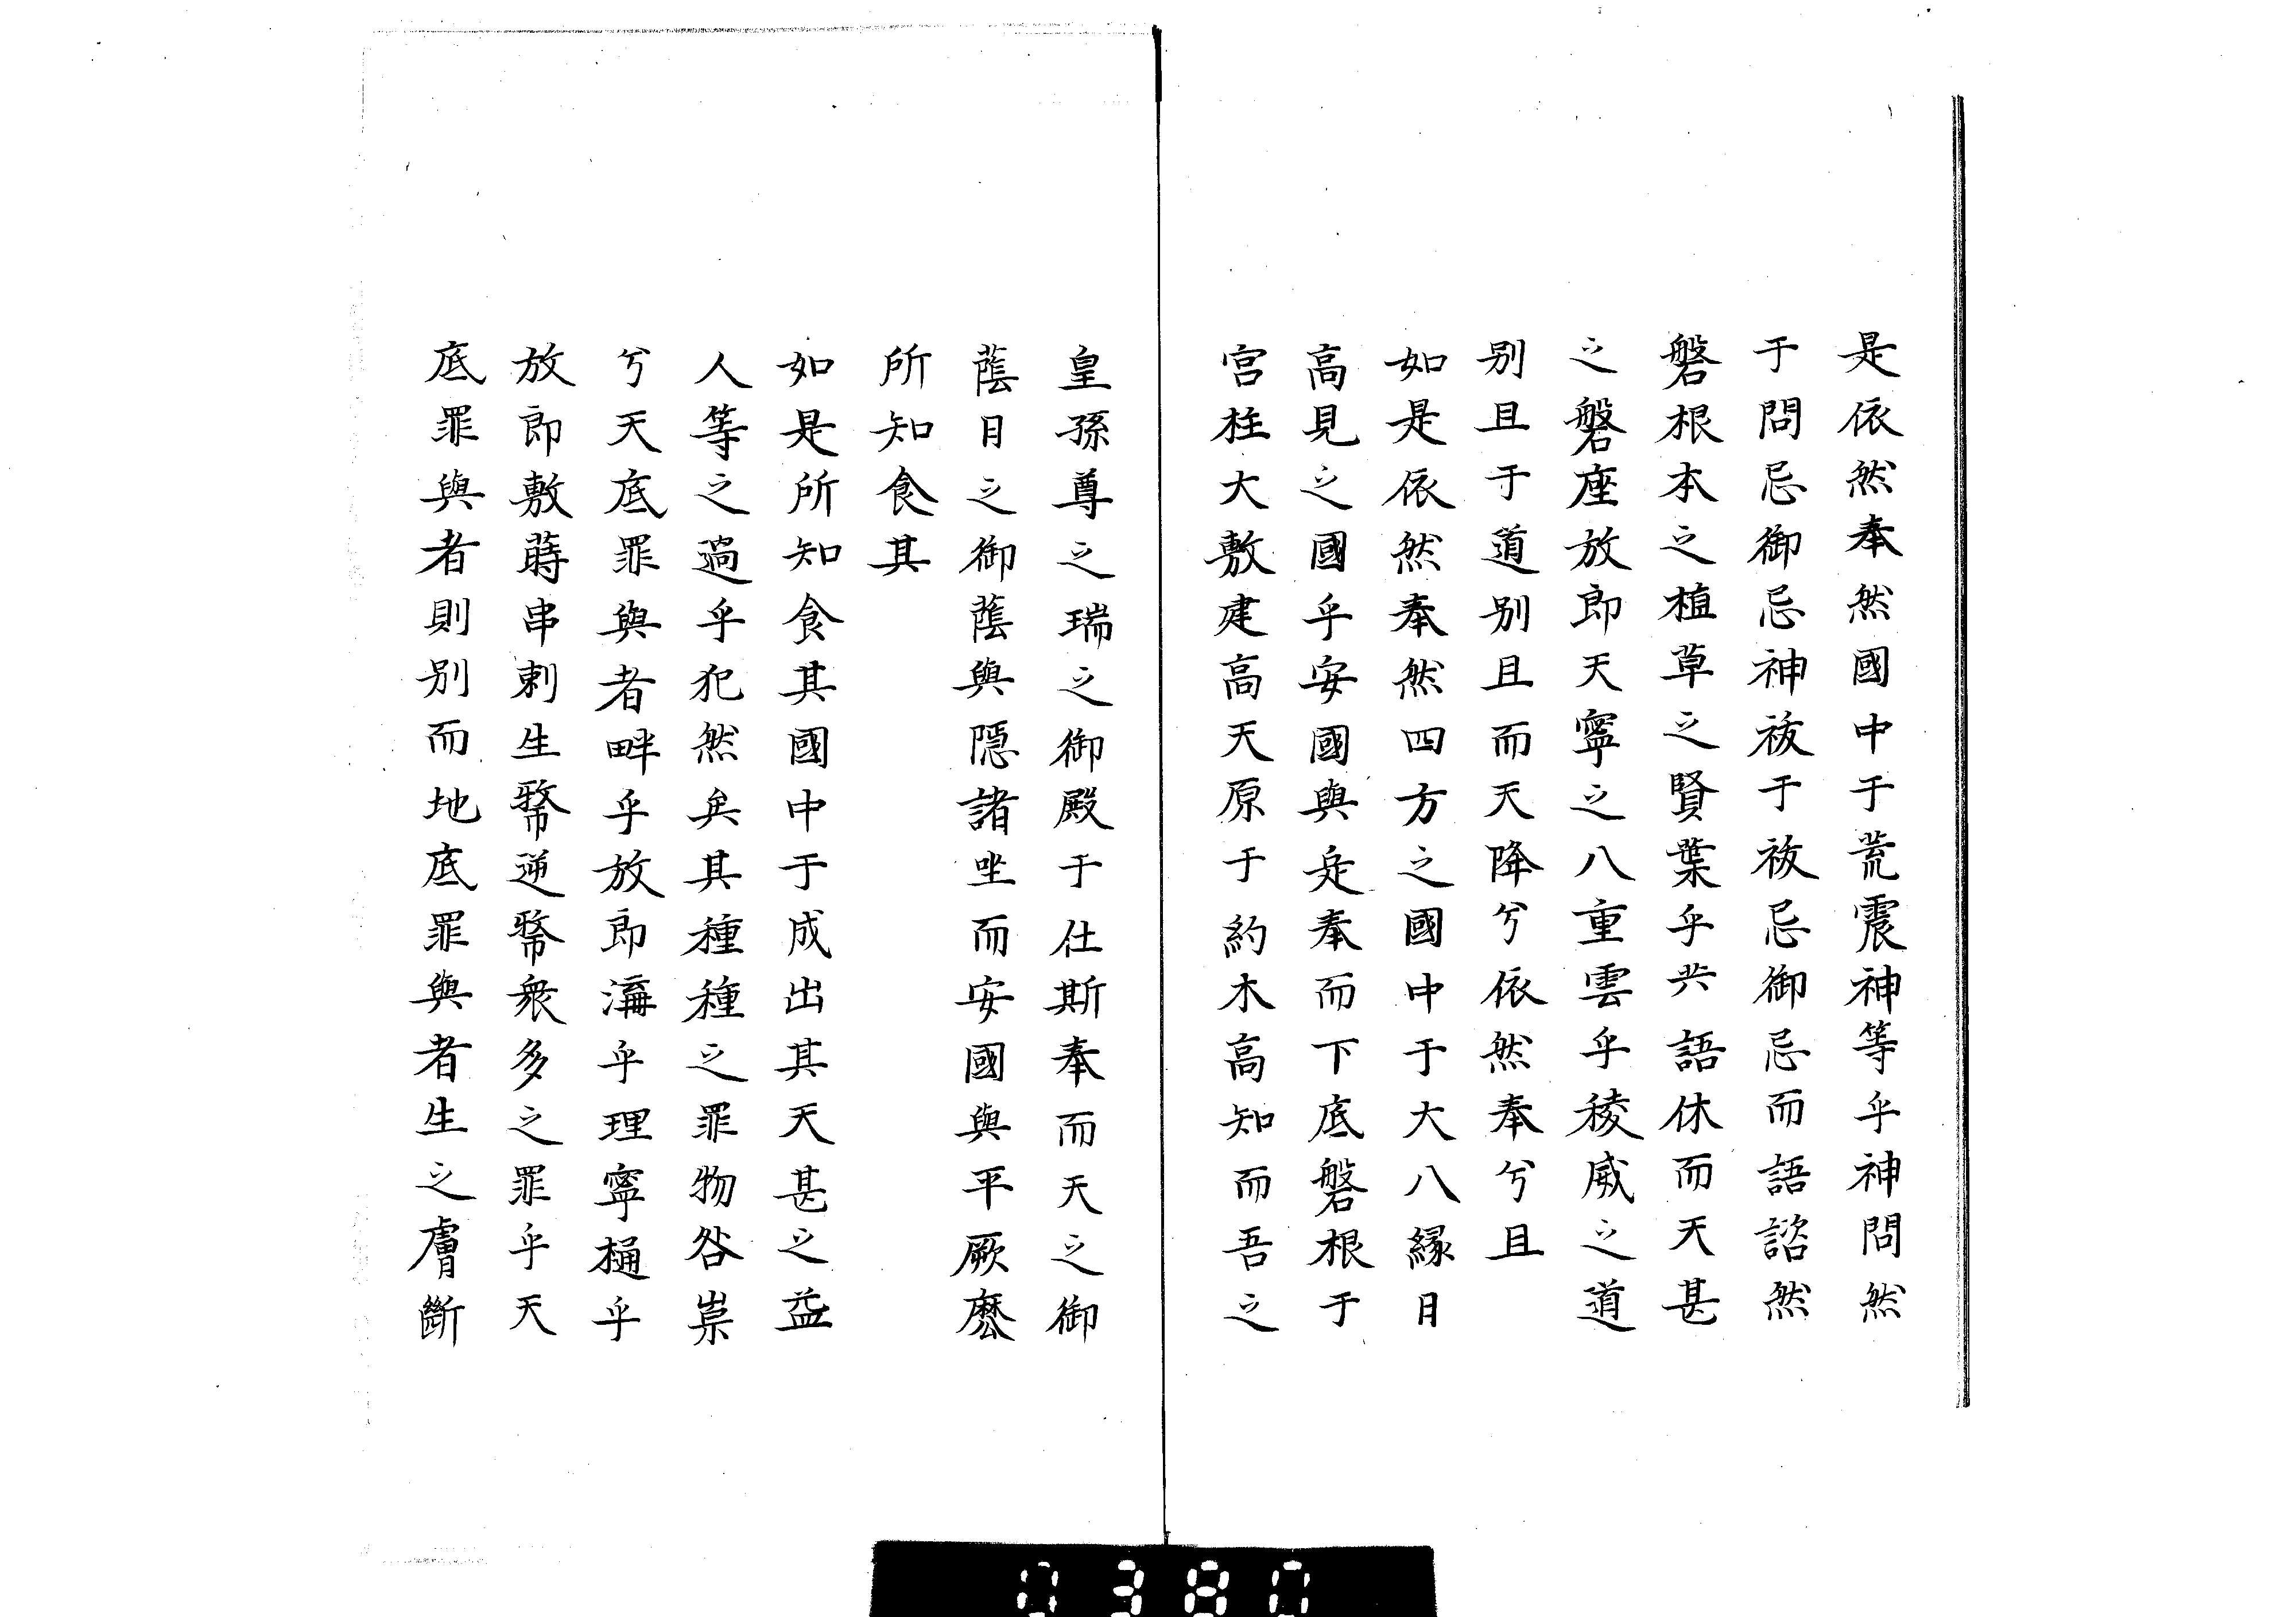 是依然奉然國中于荒震神等乎神問然
于問忌御忌神祓于祓忌御忌而語諮然
磐根本之植草之賢葉乎共語休而天甚
之磐座放郎天寧之八重雲乎稜威之道
別且于道別且而天降兮依然奉兮且
如是依然奉然四方之國中于大八緣日
高見之國乎安國與定奉而下底磐根于
宮柱大敷建高天原于約木高知而吾之
皇孫尊之瑞之御殿于仕斯奉而天之御
蔭日之御蔭與隱諸坐而安國與平厥麽
所知食其
如是所知食其國中于成出其天甚之益
人等之過乎犯然矣其種種之罪物咎祟
兮天底罪與者畔乎放郎溝乎理寧樋乎
放郎敷蒔串刺生幣逆幣衆多之罪乎天
底罪與者則別而地底罪與者生之膚斷
0380